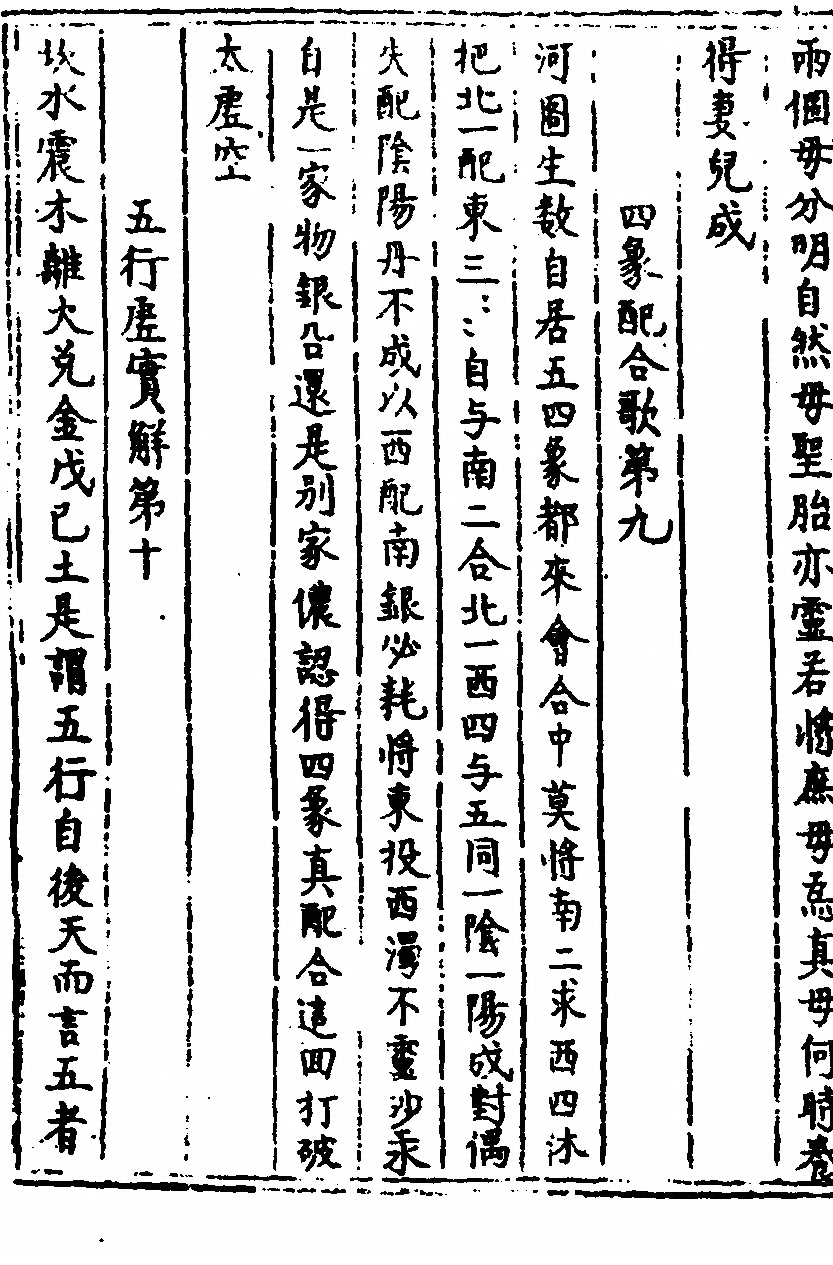 兩個毋分明自然毋聖胎亦靈若將庶毋爲真毋何時養
得妻兒成
四象配合歌第九
河圖生数自居五四象都來會合中莫將南二求西四沐
把北一配東三〻自与南二合北一西四与五同一陰一陽成對偶
失配陰陽丹不成以西配南銀必耗將東投西濁不靈沙汞
自是一家物銀鉛還是別家儂認得四象真配合這回打破
太虛空
五行虛實解第十
坎水震木離火兌金戊己土是謂五行自後天而言五者